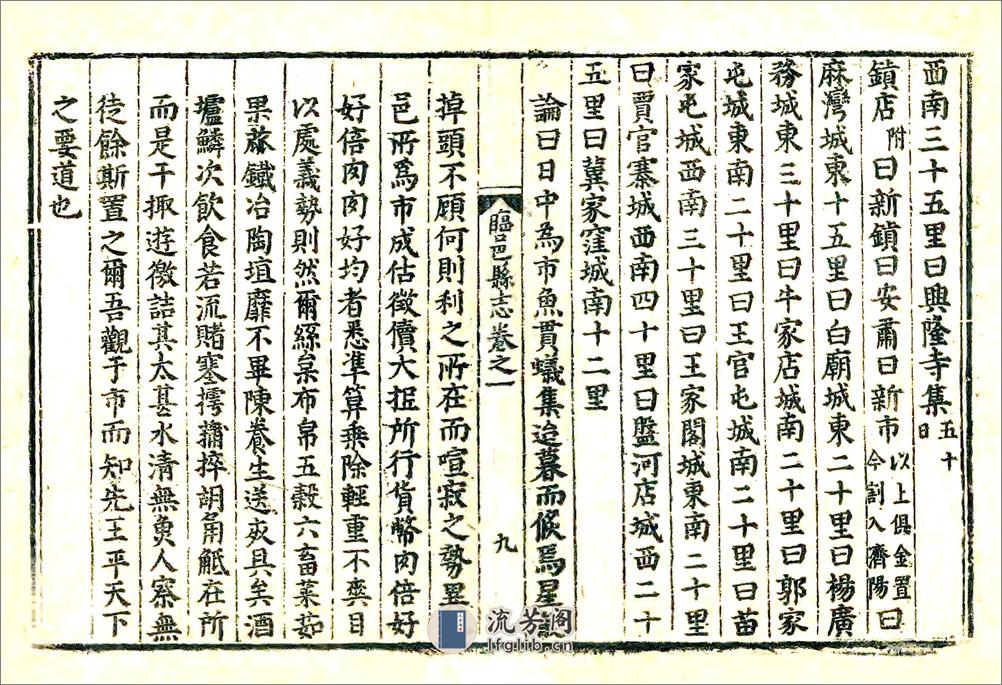 西南三十五里曰興隆寺集五十日
鎮店附曰新鎮曰安肅曰新市以上俱金置今割入齊陽曰
麻灣城東十五里曰白廟城東二十里曰楊廣
務城東三十里曰牛家店城南二十里曰郭家
屯城東南二十里曰王官屯城南二十里曰苗
家屯城西南三十里曰王家閣城東南二十里
曰賈官寨城西南四十里曰盤河店城西二十
五里曰冀家窪城南十二里
論曰日中為市魚貫蟻集迨暮而倐焉星
臨邑縣志卷之一
九
掉頭不顧何則利之所在而喧寂之勢異
邑所爲市成估徵儥大抵所行貨幣肉倍好
好倍肉肉好均者悉準算乗除輕重不爽目
以處義勢則然爾絲枲布帛五穀六畜菜茹
果蓏鐵冶陶埴靡不畢陳養生送死具矣酒
壚鱗次飲食若流賭塞摴蒱捽胡角觝在所
而是干掫遊徼詰其太甚水清無魚人察無
徒餘斯置之爾吾觀于市而知先王平天下
之要道也
流芳閣
lfglib.cn